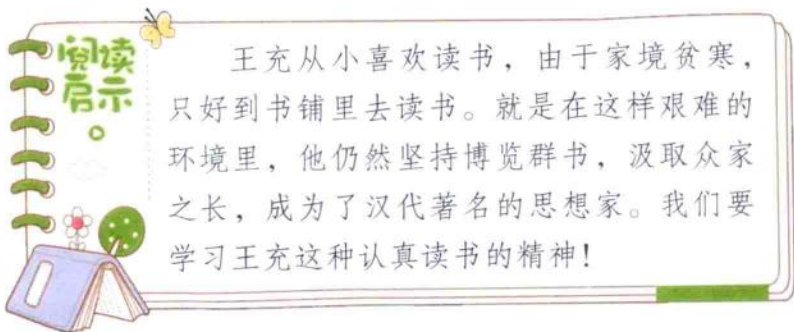 阅读
启示
王充从小喜欢读书，由于家境贫寒，
只好到书铺里去读书。就是在这样艰难的
环境里，他仍然坚持博览群书，汲取众家
之长，成为了汉代著名的思想家。我们要
学习王充这种认真读书的精神！